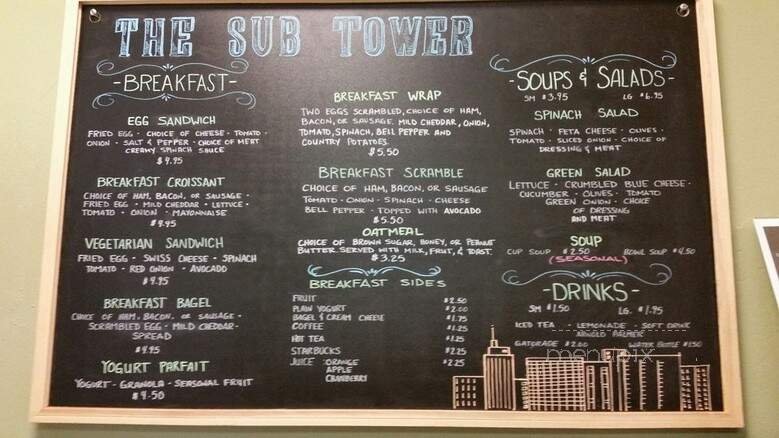 THE SUB TOWER
-BREAKFAST-
EGG SANDWICH
FRIED EGG · CHOICE OF CHEESE · TOMATO ·
ONION · SALT & PEPPER · CHOICE OF MEAT
CREAMY SPINACH SAUCE
$4.95
BREAKFAST CROISSANT
CHOICE OF HAM, BACON, OR SAUSAGE ·
FRIED EGG · MILD CHEDDAR · LETTUCE ·
TOMATO · ONION · MAYONNAISE
$4.95
VEGETARIAN SANDWICH
FRIED EGG · SWISS CHEESE · SPINACH
TOMATO · RED ONION · AVOCADO
$4.95
BREAKFAST BAGEL
CHOICE OF HAM, BACON, OR SAUSAGE ·
SCRAMBLED EGG · MILD CHEDDAR ·
SPREAD
$4.95
YOGURT PARFAIT
YOGURT · GRANOLA · SEASONAL FRUIT
$4.50
BREAKFAST WRAP
TWO EGGS SCRAMBLED, CHOICE OF HAM,
BACON, OR SAUSAGE. MILD CHEDDAR, ONION,
TOMATO, SPINACH, BELL PEPPER AND
COUNTRY POTATOES.
$5.50
BREAKFAST SCRAMBLE
CHOICE OF HAM, BACON, OR SAUSAGE
TOMATO · ONION · SPINACH · CHEESE
BELL PEPPER · TOPPED WITH AVOCADO
$5.50
OATMEAL
CHOICE OF BROWN SUGAR, HONEY, OR PEANUT
BUTTER. SERVED WITH MILK, FRUIT, & TOAST.
$3.25
BREAKFAST SIDES
FRUIT $2.50
PLAIN YOGURT $2.00
BAGEL & CREAM CHEESE $1.75
COFFEE $1.25
HOT TEA $1.25
STARBUCKS $2.25
JUICE ORANGE $2.25
APPLE
CRANBERRY
-SOUPS & SALADS-
SM $3.95 LG $6.95
SPINACH SALAD
SPINACH · FETA CHEESE · OLIVES ·
TOMATO · SLICED ONION · CHOICE OF
DRESSING & MEAT
GREEN SALAD
LETTUCE · CRUMBLED BLUE CHEESE ·
CUCUMBER · OLIVES · TOMATO
GREEN ONION · CHOICE
OF DRESSING
AND MEAT
SOUP
CUP SOUP $2.50 BOWL SOUP $4.50
(SEASONAL)
-DRINKS-
SM $1.50 LG. $1.95
ICED TEA · LEMONADE · SOFT DRINK
ARNOLD PALMER
GATORADE $2.00 WATER BOTTLE $1.50
menupix